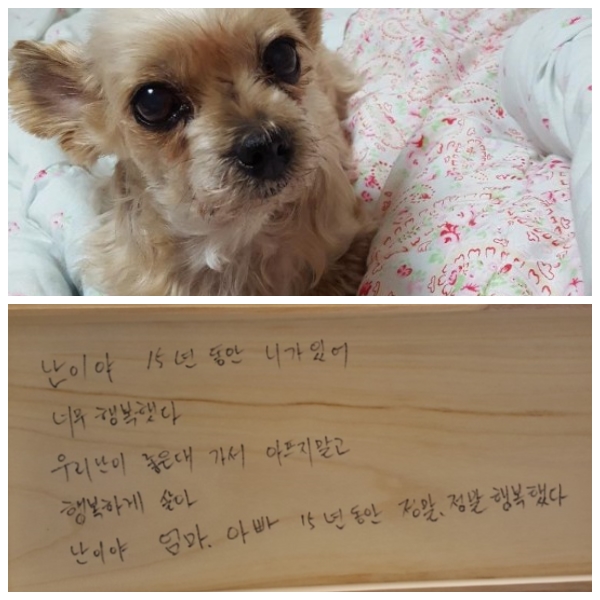 난이야 15년 동안 니가 있어
너무 행복했다
우리 난이 좋은대 가서 아프지말고
행복하게 살아
난이야 엄마, 아빠 15년 동안 정말, 정말 행복했다